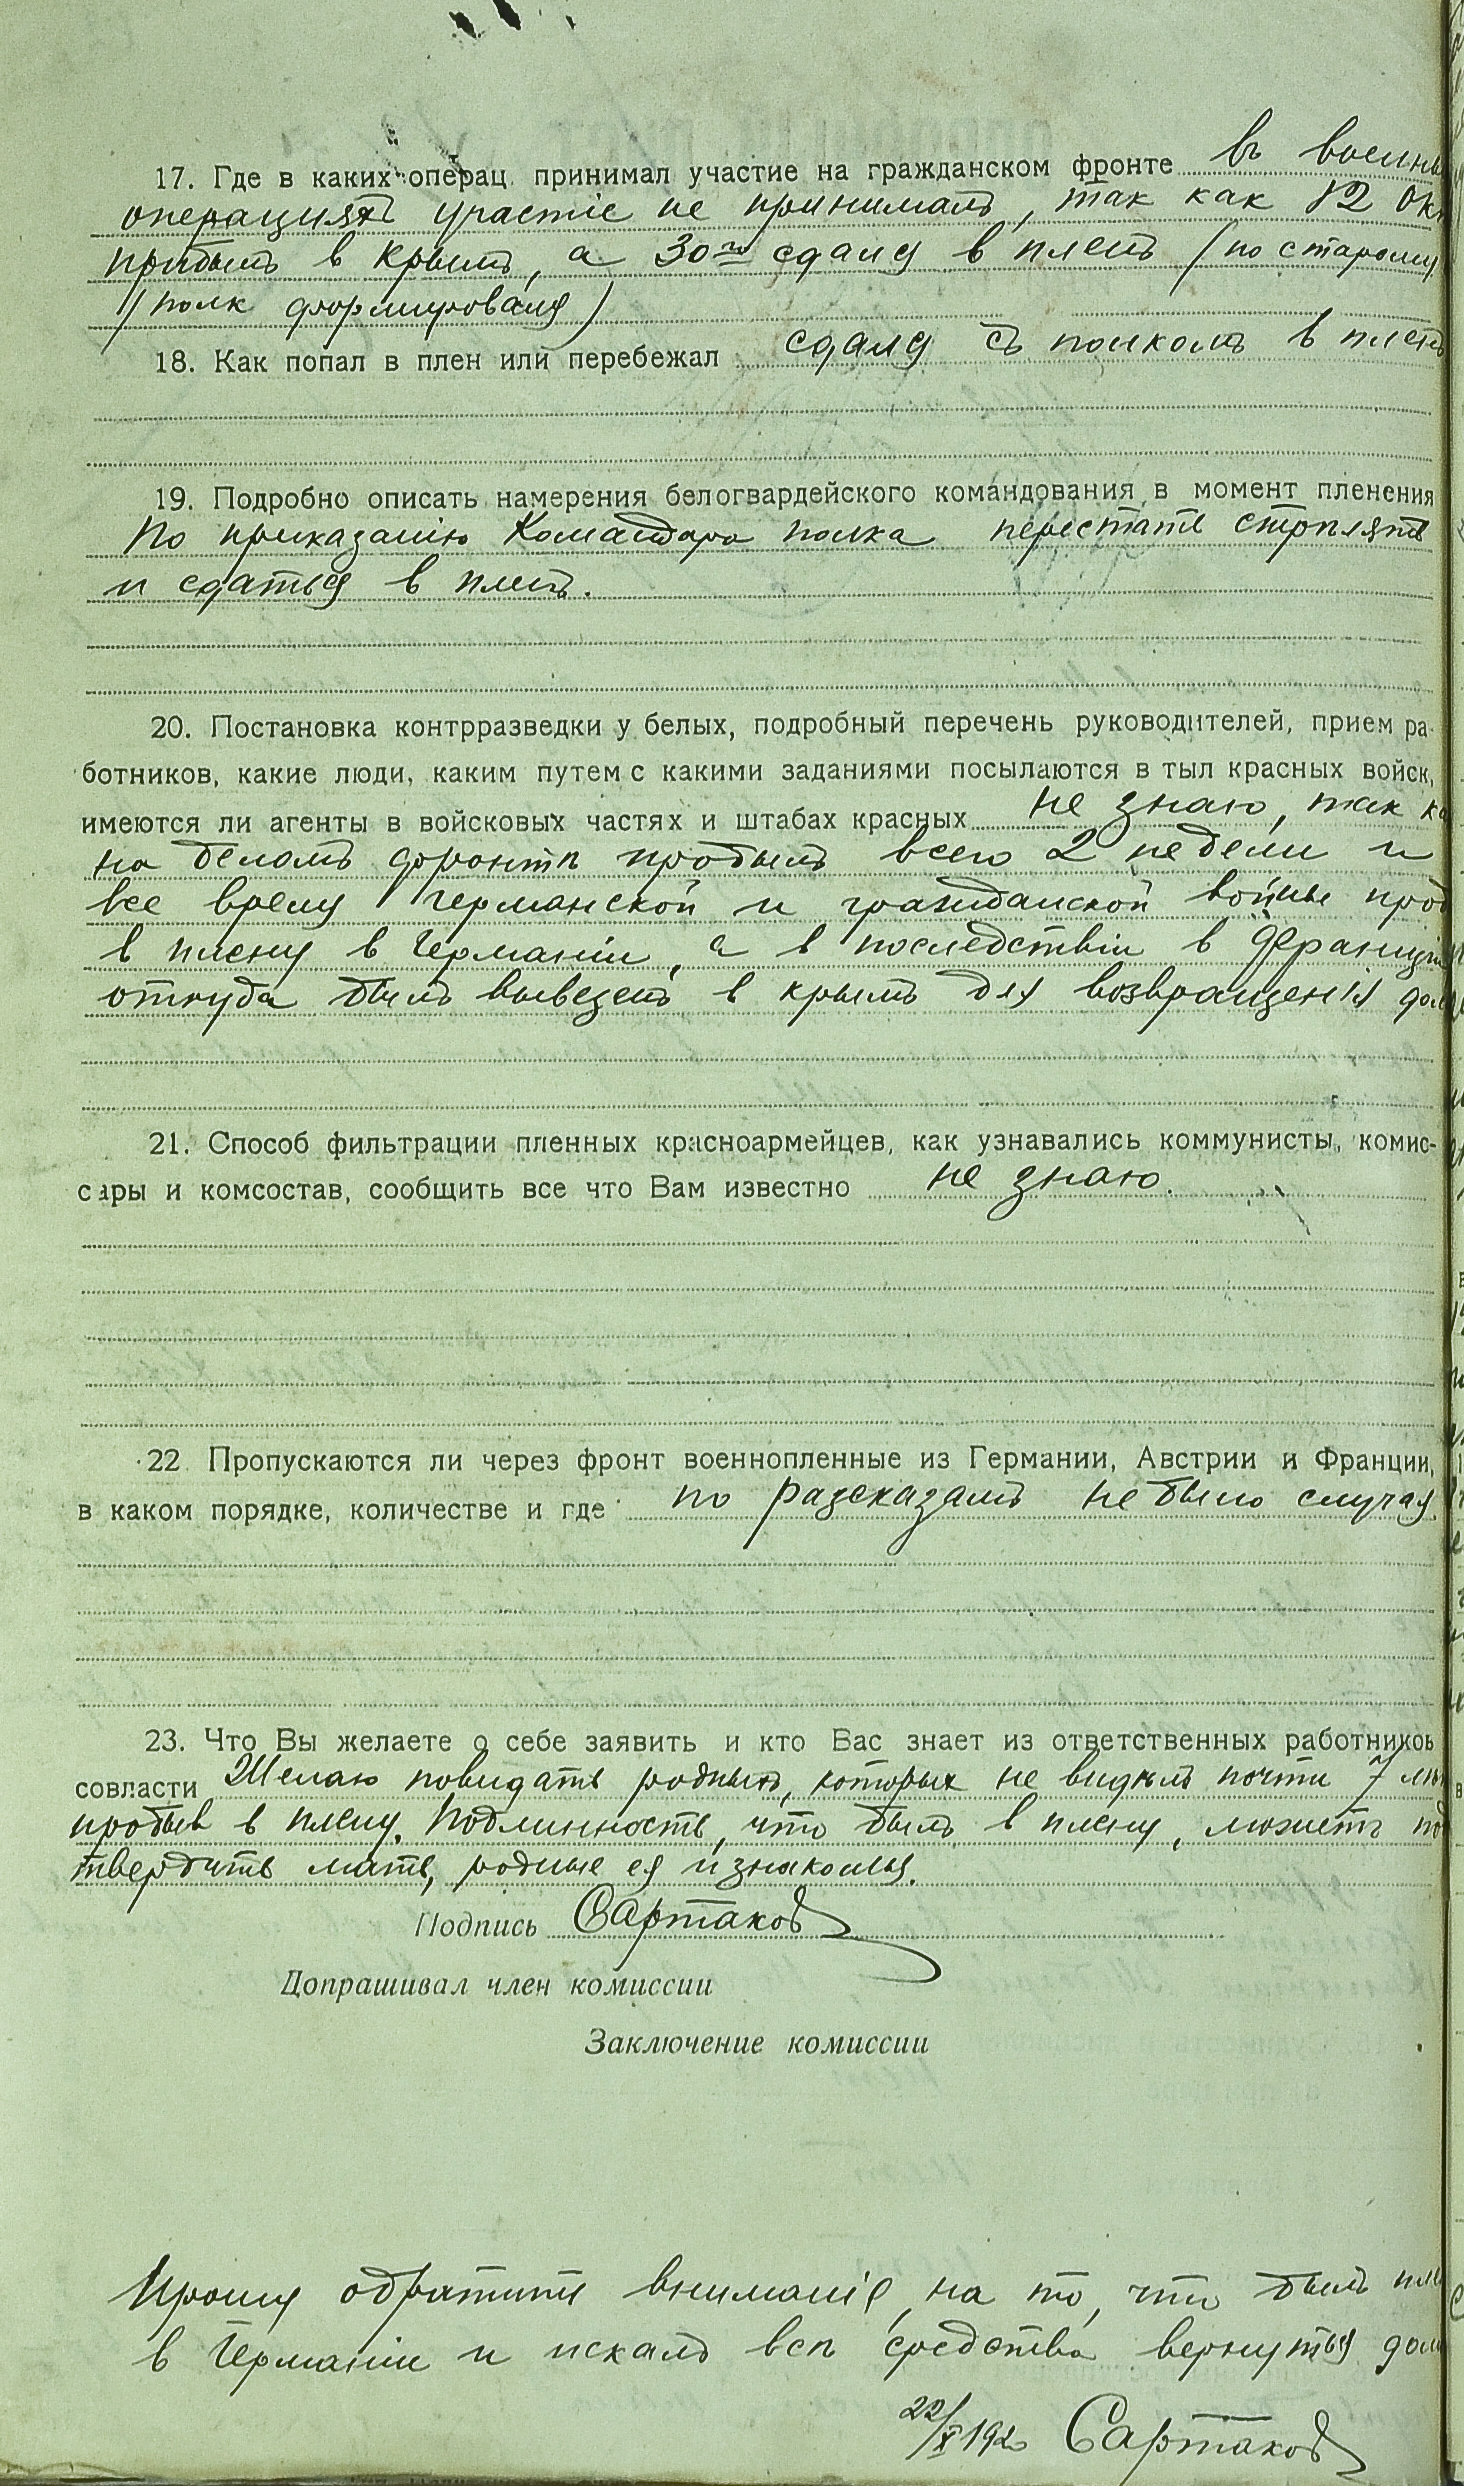 17. Где в каких операц. принимал участие на гражданском фронте въ военны
операцияхъ участіе не принималъ, так как 12 Ок
прибылъ в Крымъ, а 30го сдался в пленъ (по старому
/полк формировался)
18. Как попал в плен или перебежал сдался съ полкомъ в пленъ
19. Подробно описать намерения белогвардейского командования в момент пленения
По приказанію Командира полка перестать стрѣлять
и сдаться в пленъ.
20. Постановка контрразведки у белых, подробный перечень руководителей, прием ра-
ботников, какие люди, каким путем с какими заданиями посылаются в тыл красных войск,
имеются ли агенты в войсковых частях и штабах красных не знаю, так ка
на беломъ фронтѣ пробылъ всего 2 недели и
все время германской и гражданской войны проб
в плену в Германіи, а в последствіи в Франціи
откуда былъ вывезенъ в крымъ для возвращенія дом
21. Способ фильтрации пленных красноармейцев, как узнавались коммунисты, комис-
сары и комсостав, сообщить все что Вам известно не знаю.
22 Пропускаются ли через фронт военнопленные из Германии, Австрии и Франции,
в каком порядке, количестве и где по разсказамъ не было случая.
23. Что Вы желаете о себе заявить и кто Вас знает из ответственных работников
совласти Желаю повидать родныхъ, которых не видѣлъ почти 7 лѣт
пробыв в плену. Подлинность, что былъ в плену, можетъ под
твердить мать, родные ея и знакомыя.
Подпись Сартаков
Допрашивал член комиссии
Заключение комиссии
Прошу обратить вниманіе, на то, что былъ пле
в Германіи и искалъ всѣ средства вернуться дом
22/X 1920 Сартаков